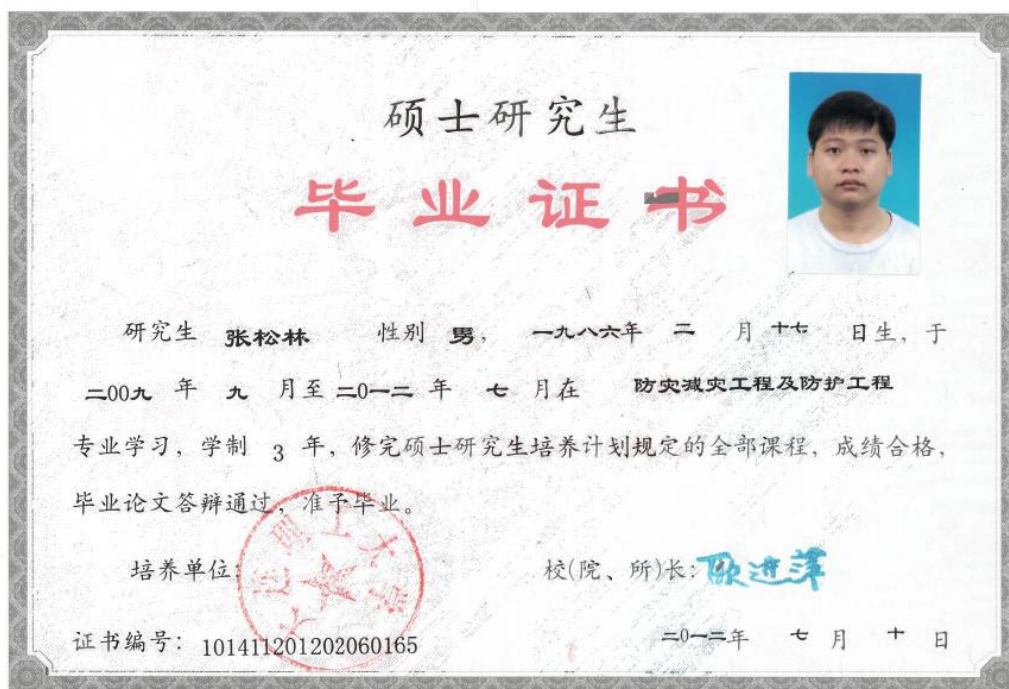 硕士研究生
毕业证书
研究生 张松林 性别 男， 一九八六年 二 月 十七 日生，于
二00九 年 九 月至 二0一二 年 七 月在 防灾减灾工程及防护工程
专业学习，学制 3 年，修完硕士研究生培养计划规定的全部课程，成绩合格，
毕业论文答辩通过，准予毕业。
大连理工大学
培养单位：
校(院、所)长：欧进萍
证书编号：101411201202060165
二0一二年 七 月 十 日